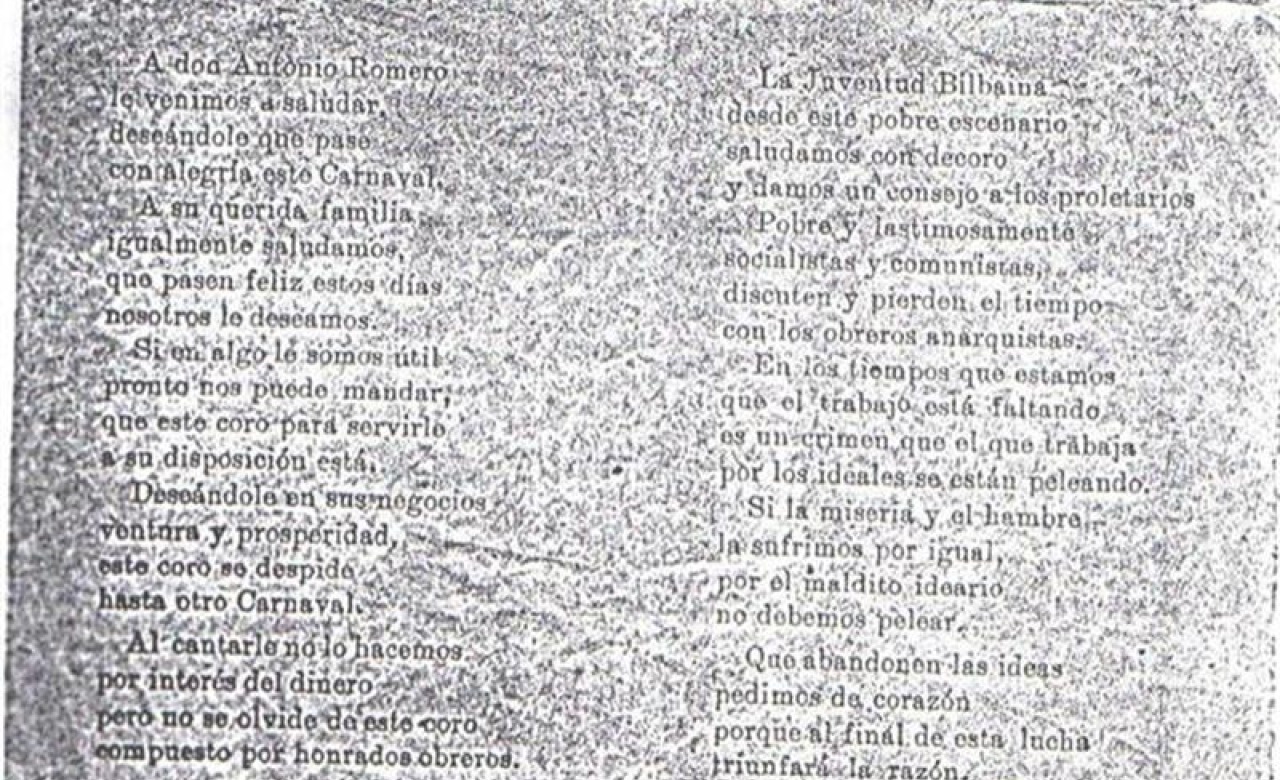 A don Antonio Romero
le venimos a saludar,
deseándole que pase
con alegría este Carnaval.
A su querida familia
igualmente saludamos,
que pasen feliz estos días
nosotros le deseamos.
Si en algo le somos útil
pronto nos puede mandar,
que este coro para servirle
a su disposición está.
Deseándole en sus negocios
ventura y prosperidad,
este coro se despide
hasta otro Carnaval.
Al cantarle no lo hacemos
por interés del dinero
pero no se olvide de este coro
compuesto por honrados obreros.
La Juventud Bilbaina
desde este pobre escenario
saludamos con decoro
y damos un consejo a los proletarios
Pobre y lastimosamente
socialistas y comunistas,
discuten y pierden el tiempo
con los obreros anarquistas.
En los tiempos que estamos
que el trabajo está faltando
es un crimen que el que trabaja
por los ideales se están peleando.
Si la miseria y el hambre
la sufrimos por igual,
por el maldito ideario
no debemos pelear.
Que abandonen las ideas
pedimos de corazón
porque al final de esta lucha
triunfará la razón.